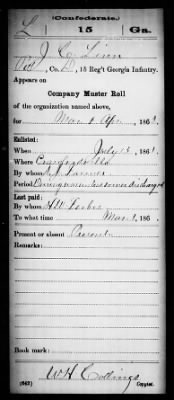 (Confederate.)
L 15 Ga.
J. C. Linn
Pvt, Co. D, 15 Reg't Georgia Infantry.
Appears on
Company Muster Roll
of the organization named above,
for Mar & Apr, 186
Enlisted:
When July 15, 186
Where Crawfordville
By whom
Period
Last paid:
By whom
To what time Mar 1, 186
Present or absent Present
Remarks:
Book mark:
W H Collings
(642) Copyist.